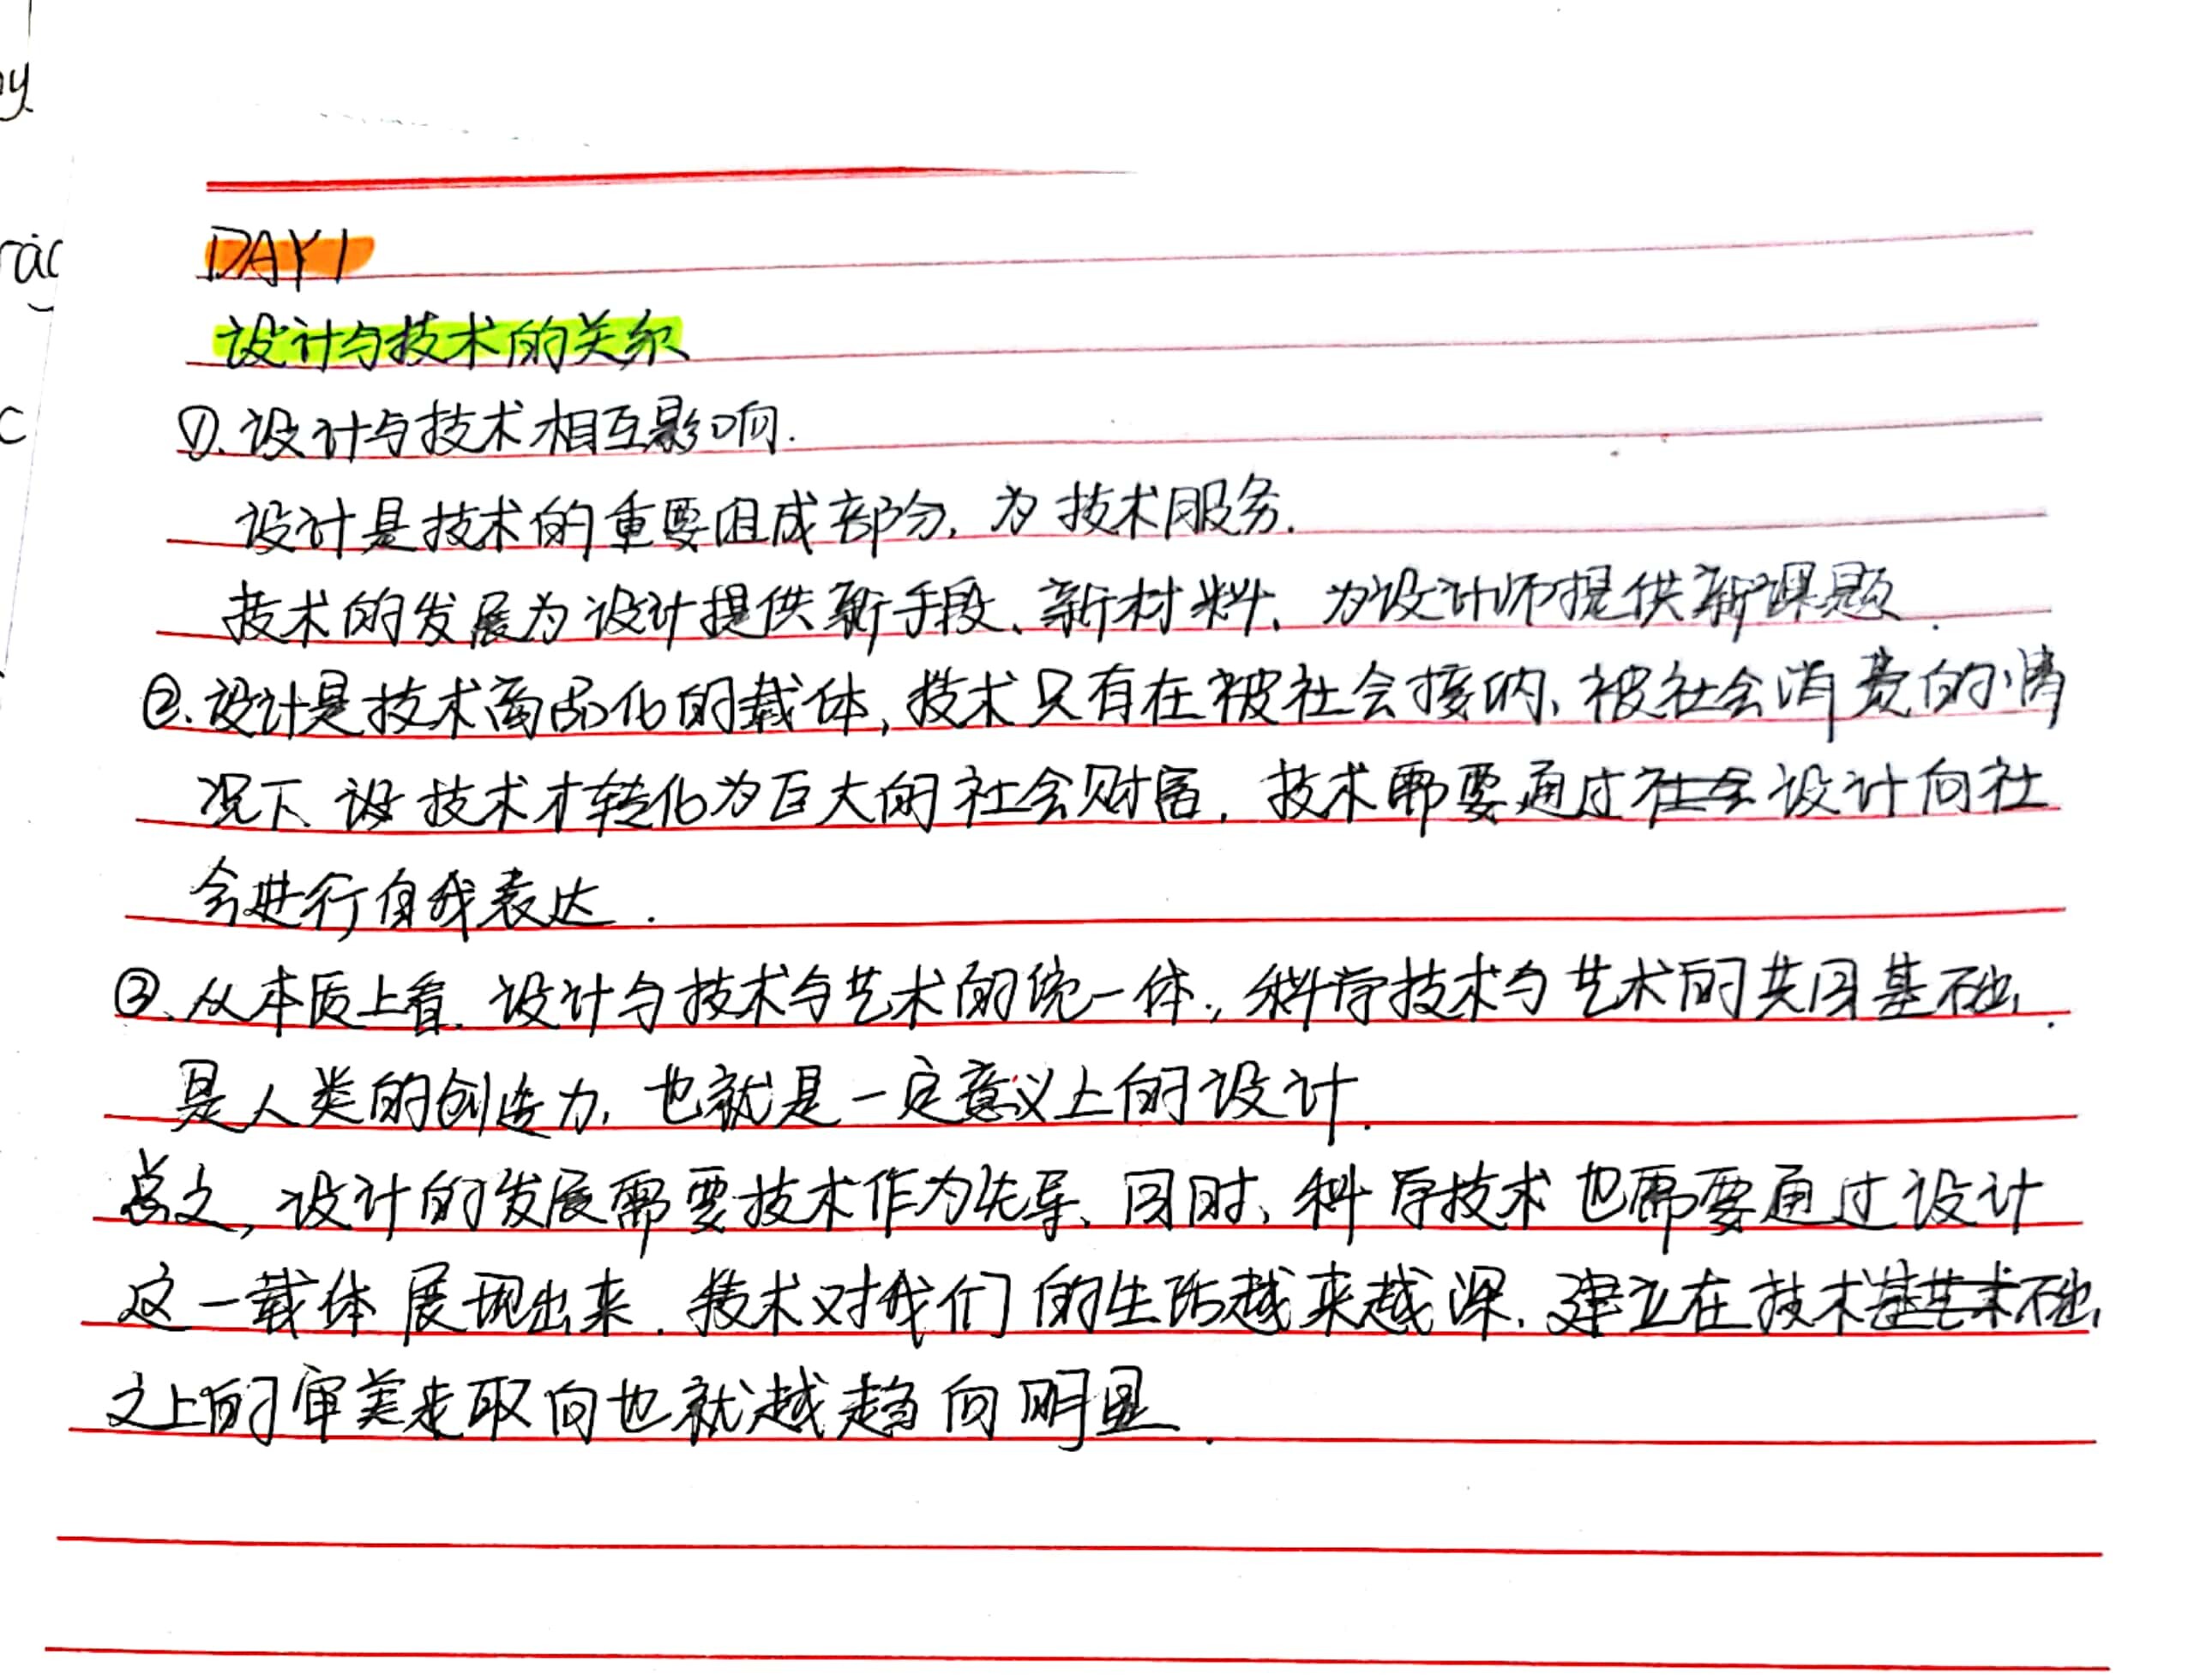 ny
rac
c
DAY1
设计与技术的关系
①.设计与技术相互影响.
设计是技术的重要组成部分,为技术服务.
技术的发展为设计提供新手段、新材料、为设计师提供新课题.
②.设计是技术商品化的载体,技术只有在被社会接纳、被社会消费的情
况下、技术才转化为巨大的社会财富.技术需要通过设计向社
会进行自我表达.
③.从本质上看.设计与技术与艺术的统一体,科学技术与艺术的共同基础.
是人类的创造力,也就是一定意义上的设计.
总之,设计的发展需要技术作为先导、同时、科学技术也需要通过设计
这一载体展现出来.技术对我们的生活越来越深.建立在技术基础
之上的审美取向也就越趋向明显.